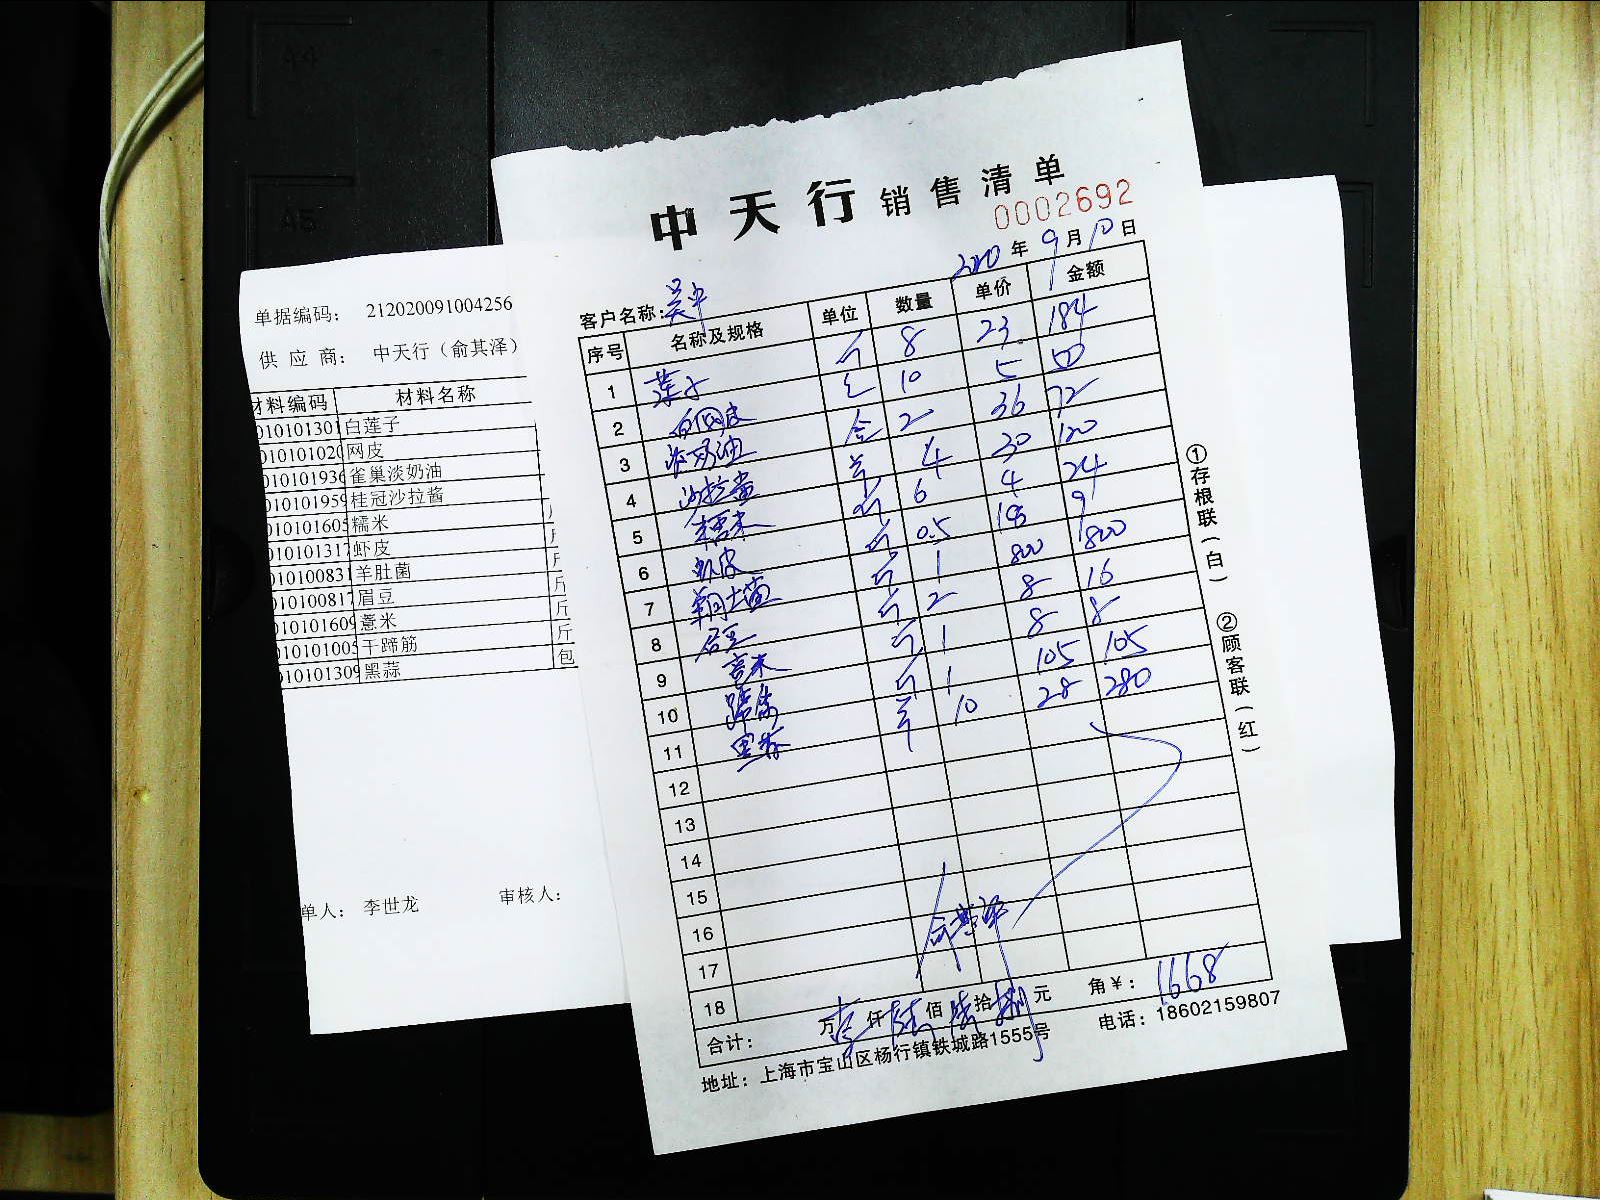 A4
A5
单据编码： 212020091004256
供 应 商： 中天行（俞其泽）
材料编码 材料名称
010101301 白莲子
010101020 网皮
010101936 雀巢淡奶油
010101959 桂冠沙拉酱
010101605 糯米
010101317 虾皮
010100831 羊肚菌
010100817 眉豆 斤
010101609 薏米 斤
010101005 干蹄筋 斤
010101309 黑蒜 包
单人： 李世龙 审核人：
中天行 销售清单
0002692
2020 年 9 月 10 日
客户名称：吴中
序号 名称及规格 单位 数量 单价 金额
1 莲子 斤 8 23 184
2 网皮 包 10 5 50
3 淡奶油 合 2 36 72
4 沙拉酱 4 30 120
5 糯米 斤 6 4 24
6 虾皮 斤 0.5 18 9
7 羊肚菌 斤 1 800 800
8 眉豆 斤 2 8 16
9 斤 1 8 8
10 蹄筋 斤 1 105 105
11 黑蒜 10 28 280
12
13
14
15
16
17
18
俞其泽
合计： 万 壹 仟 陆 佰 陆 拾 捌 元 角 ¥：1668
地址：上海市宝山区杨行镇铁城路1555号 电话：18602159807
①存根联（白） ②顾客联（红）